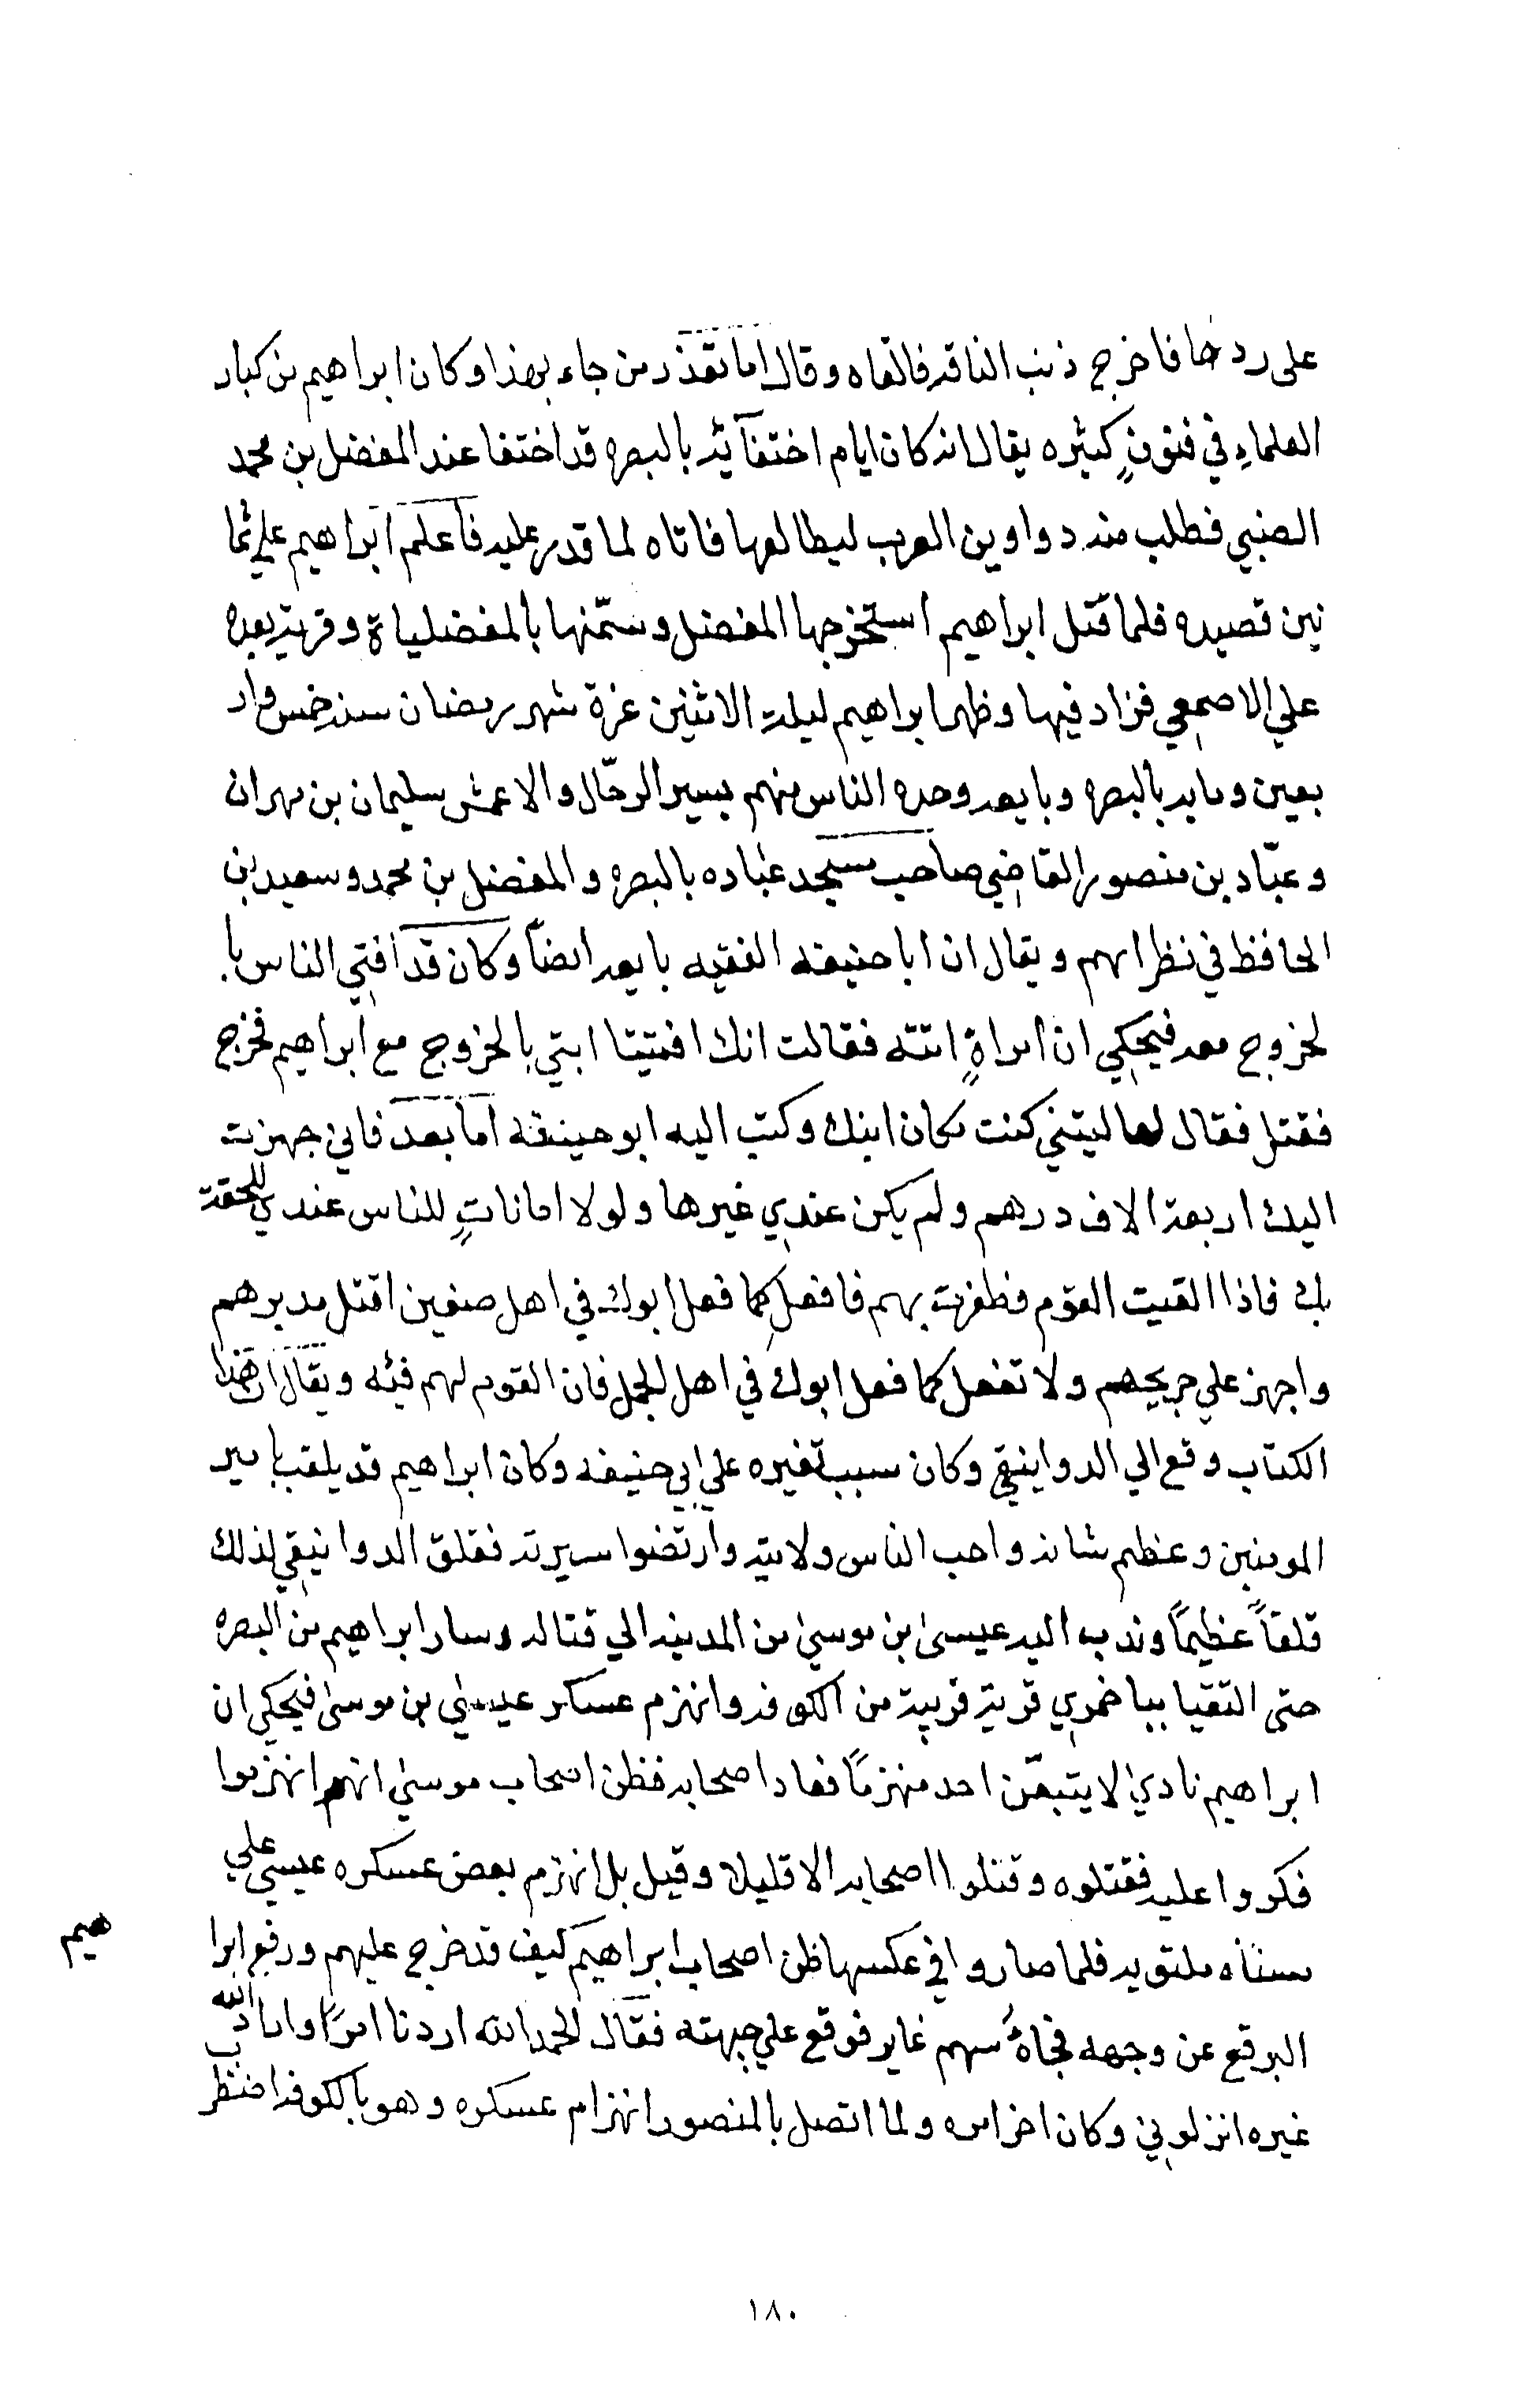 على ردها فاخرج ذنب الناقه فالقاه وقال اما تعذر من جاء بهذا وكان ابراهيم من كبار
العلماءِ في فنونٍ كثيره يقال انه كان ايام اختفآئه بالبصره قد اختفا عند المفضل بن محمد
الضبي فطلب منه دواوين العرب ليطالعها فاتاه لما قدر عليه فأعلم ابراهيم علي ثما
نين قصيده فلما قتل ابراهيم استخرجها المفضل وسمّنها بالمفضلياة وقريت بعده
علي الاصمعي فزاد فيها وظهر ابراهيم ليلة الاثنين غرة شهر رمضان سنه خمس وار
بعين ومايه بالبصره وبايعه وحده الناس منهم بسير الرحّال والاعمش سليمان بن مهران
وعبّاد بن منصور القاضي صاحب مسجد عباده بالبصره والمفضل بن محمد وسعيد بن
الحافظ في نظرائهم ويقال ان ابا حنيفه الفقيه بايعه ايضاً وكان قد افتي الناس با
لخروج معه فيحكي ان امراةٍ اتته فقالت انك افتيتا ابتي بالخروج مع ابراهيم فخرج
فقتل فقال لها ليتني كنت مكان ابنك وكتب اليه ابو حنيفه اما بعد فاني جهزت
اليك اربعة الاف درهم ولم يكن عندي غيرها ولولا اماناتٍ للناس عندي للحقت
بك فاذا القيت القوم فظفرت بهم فافعل كما فعل ابوك في اهل صفين اقتل مدبرهم
واجهز علي جريحهم ولا تفعل كما فعل ابوك في اهل الجمل فان القوم لهم فئه ويقال ان هذا
الكتاب وقع الي الدوانيقي وكان سبب تغيره علي ابي حنيفه وكان ابراهيم قد يلقب بامير
المومنين وعظم شانه واحب الناس ولايته وارتضوا سيرته فقلق الدوانيقي لذلك
قلقاً عظيماً وندب اليه عيسى بن موسى من المدينه الي قتاله وسار ابراهيم من البصره
حتى التقيا بباخمري قرية قريبة من الكوفه وانهزم عسكر عيسى بن موسى فيحكي ان
ابراهيم نادي لا يتبعّن احد منهزماً فعاد اصحابه فظن اصحاب موسى انهم انهزموا
فكروا عليه فقتلوه وقتلوا اصحابه الا قليلا وقيل بل انهزم بعض عسكره عيسى علي
مسناه ملتويه فلما صاروا في عكسها ظن اصحاب ابراهيم كيف قد خرج عليهم ورفع ابرا
هيم
البرقع عن وجهه فجاهُ سهم غاير فوقع علي جبهته فقال الحمد لله اردنا امرًا واراد الله
غيره انزلوني وكان اخر امره ولما اتصل بالمنصور انهزام عسكره وهو بالكوفه اضطرب
١٨٠